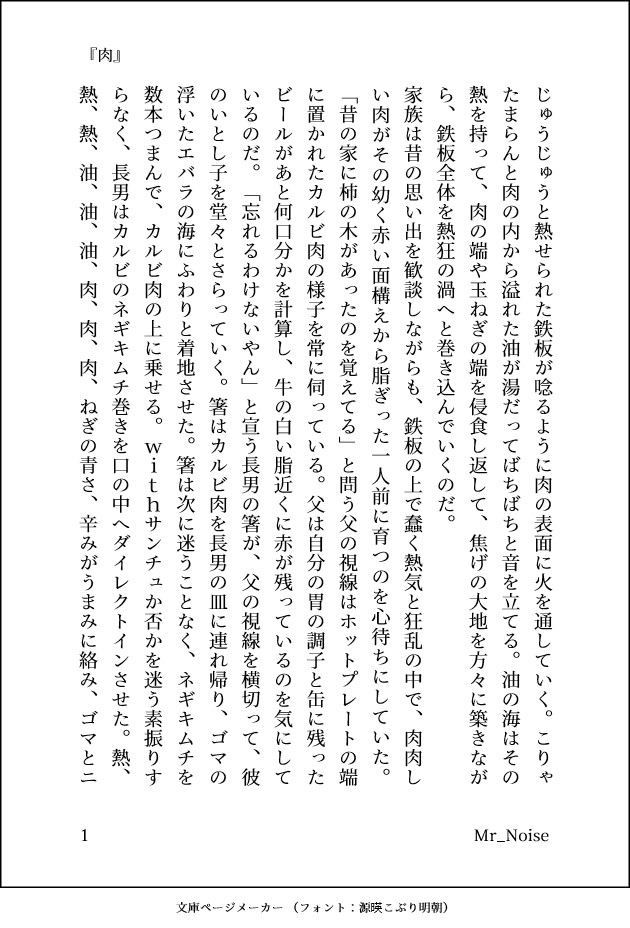 『肉』
じゅうじゅうと熱せられた鉄板が唸るように肉の表面に火を通していく。こりゃ
たまらんと肉の内から溢れた油が湯だってぱちぱちと音を立てる。油の海はその
熱を持って、肉の端や玉ねぎの端を侵食し返して、焦げの大地を方々に築きなが
ら、鉄板全体を熱狂の渦へと巻き込んでいくのだ。
家族は昔の思い出を歓談しながらも、鉄板の上で蠢く熱気と狂乱の中で、肉肉し
い肉がその幼く赤い面構えから脂ぎった一人前に育つのを心待ちにしていた。
「昔の家に柿の木があったのを覚えてる」と問う父の視線はホットプレートの端
に置かれたカルビ肉の様子を常に伺っている。父は自分の胃の調子と缶に残った
ビールがあと何口分かを計算し、牛の白い脂近くに赤が残っているのを気にして
いるのだ。「忘れるわけないやん」と宣う長男の箸が、父の視線を横切って、彼
のいとし子を堂々とさらっていく。箸はカルビ肉を長男の皿に連れ帰り、ゴマの
浮いたエバラの海にふわりと着地させた。箸は次に迷うことなく、ネギキムチを
数本つまんで、カルビ肉の上に乗せる。ｗｉｔｈサンチュか否かを迷う素振りす
らなく、長男はカルビのネギキムチ巻きを口の中へダイレクトインさせた。熱、
熱、熱、油、油、油、肉、肉、肉、ねぎの青さ、辛みがうまみに絡み、ゴマとニ
1
Mr_Noise
文庫ページメーカー （フォント：源暎こぶり明朝）